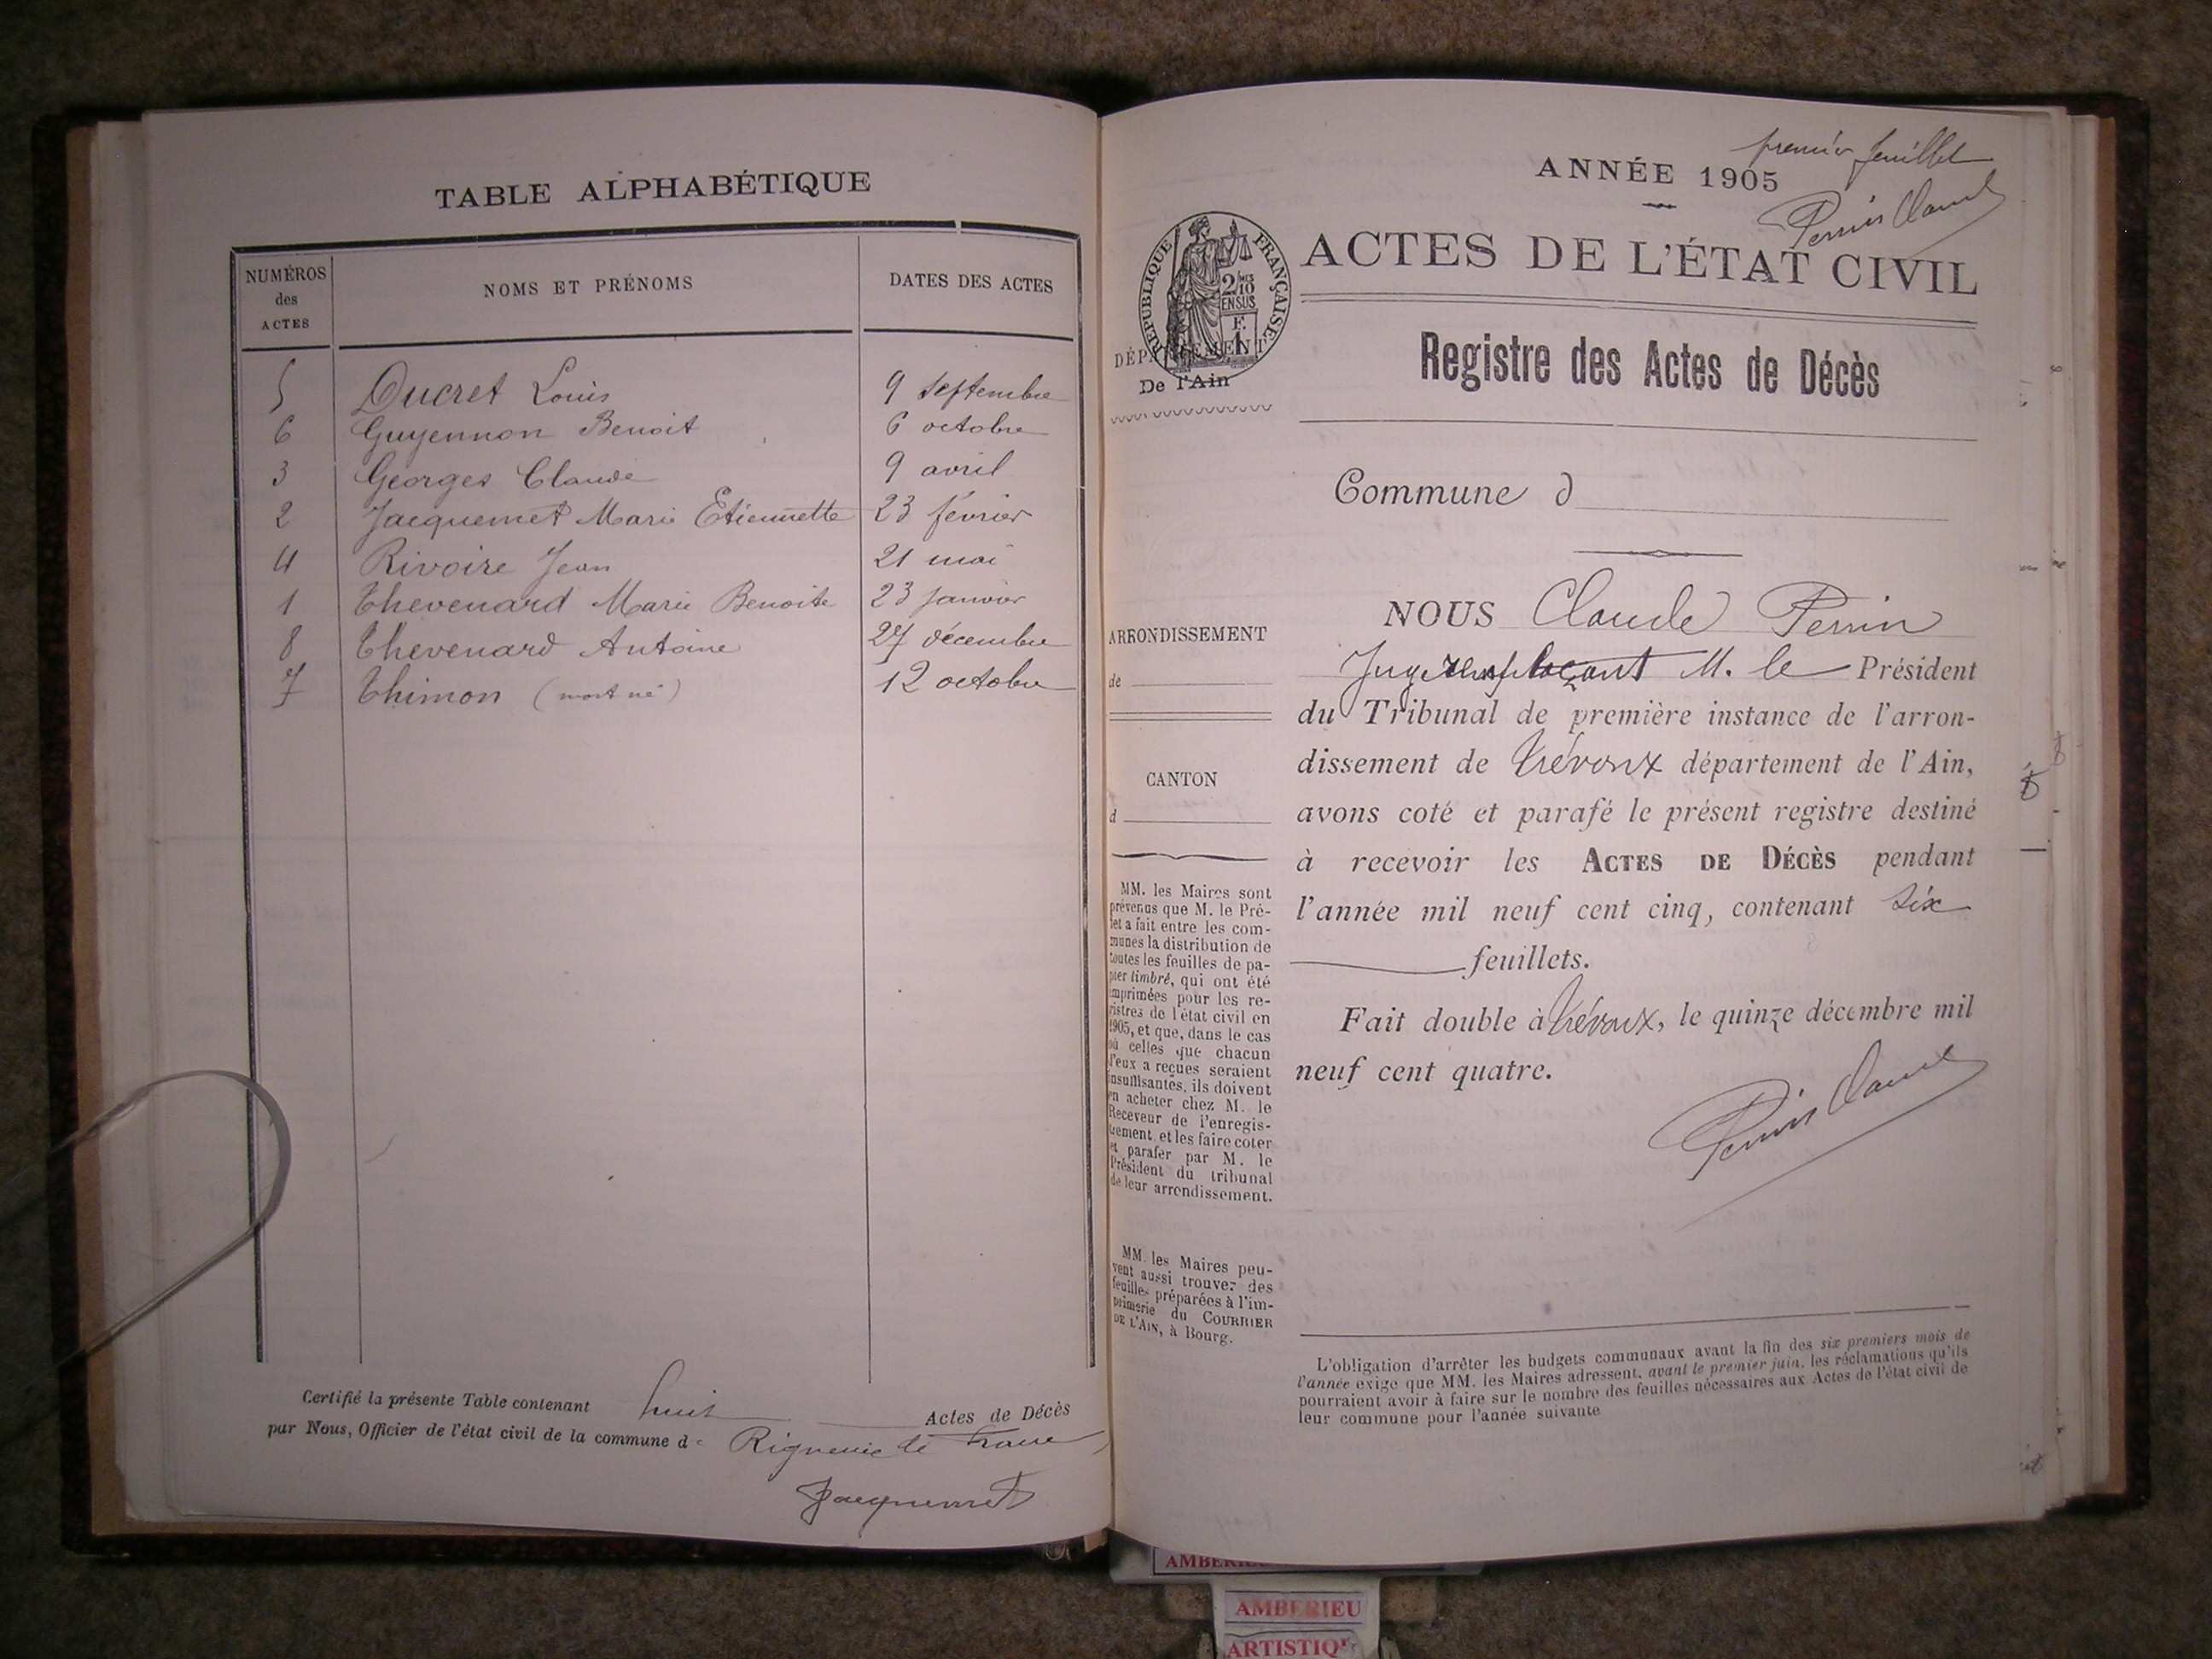 TABLE ALPHABÉTIQUE
NUMÉROS
des
ACTES
NOMS ET PRÉNOMS
DATES DES ACTES
5 Ducret Louis 9 septembre
6 Guyennon Benoit 6 octobre
3 Georges Claude 9 avril
2 Jacquemet Marie Etiennette 23 février
4 Rivoire Jean 21 mai
1 Thevenard Marie Benoite 23 janvier
8 Thevenard Antoine 27 décembre
7 Thimon (mort né) 12 octobre
Certifié la présente Table contenant huit Actes de Décès
par Nous, Officier de l'état civil de la commune d
Jacquemet
premier feuillet
ANNÉE 1905
Perrin Claude
ACTES DE L'ÉTAT CIVIL
RÉPUBLIQUE FRANÇAISE
2/10
EN SUS
F.
1
DÉPARTEMENT
De l'Ain
Registre des Actes de Décès
Commune d
ARRONDISSEMENT
de
CANTON
d
MM. les Maires sont
prévenus que M. le Pré-
fet a fait entre les com-
munes la distribution de
toutes les feuilles de pa-
pier timbré, qui ont été
imprimées pour les re-
gistres de l'état civil en
1905, et que, dans le cas
où celles que chacun
d'eux a reçues seraient
insuffisantes, ils doivent
en acheter chez M. le
Receveur de l'enregis-
trement, et les faire coter
et parafer par M. le
Président du tribunal
de leur arrondissement.
MM. les Maires peu-
vent aussi trouver des
feuilles préparées à l'im-
primerie du COURRIER
DE L'AIN, à Bourg.
NOUS Claude Perrin
Juge remplaçant M. le Président
du Tribunal de première instance de l'arron-
dissement de Trévoux département de l'Ain,
avons coté et parafé le présent registre destiné
à recevoir les ACTES DE DÉCÈS pendant
l'année mil neuf cent cinq, contenant six
feuillets.
Fait double à Trévoux, le quinze décembre mil
neuf cent quatre.
Perrin Claude
L'obligation d'arrêter les budgets communaux avant la fin des six premiers mois de
l'année exige que MM. les Maires adressent, avant le premier juin, les réclamations qu'ils
pourraient avoir à faire sur le nombre des feuilles nécessaires aux Actes de l'état civil de
leur commune pour l'année suivante
AMBERIEU
ARTISTIQ